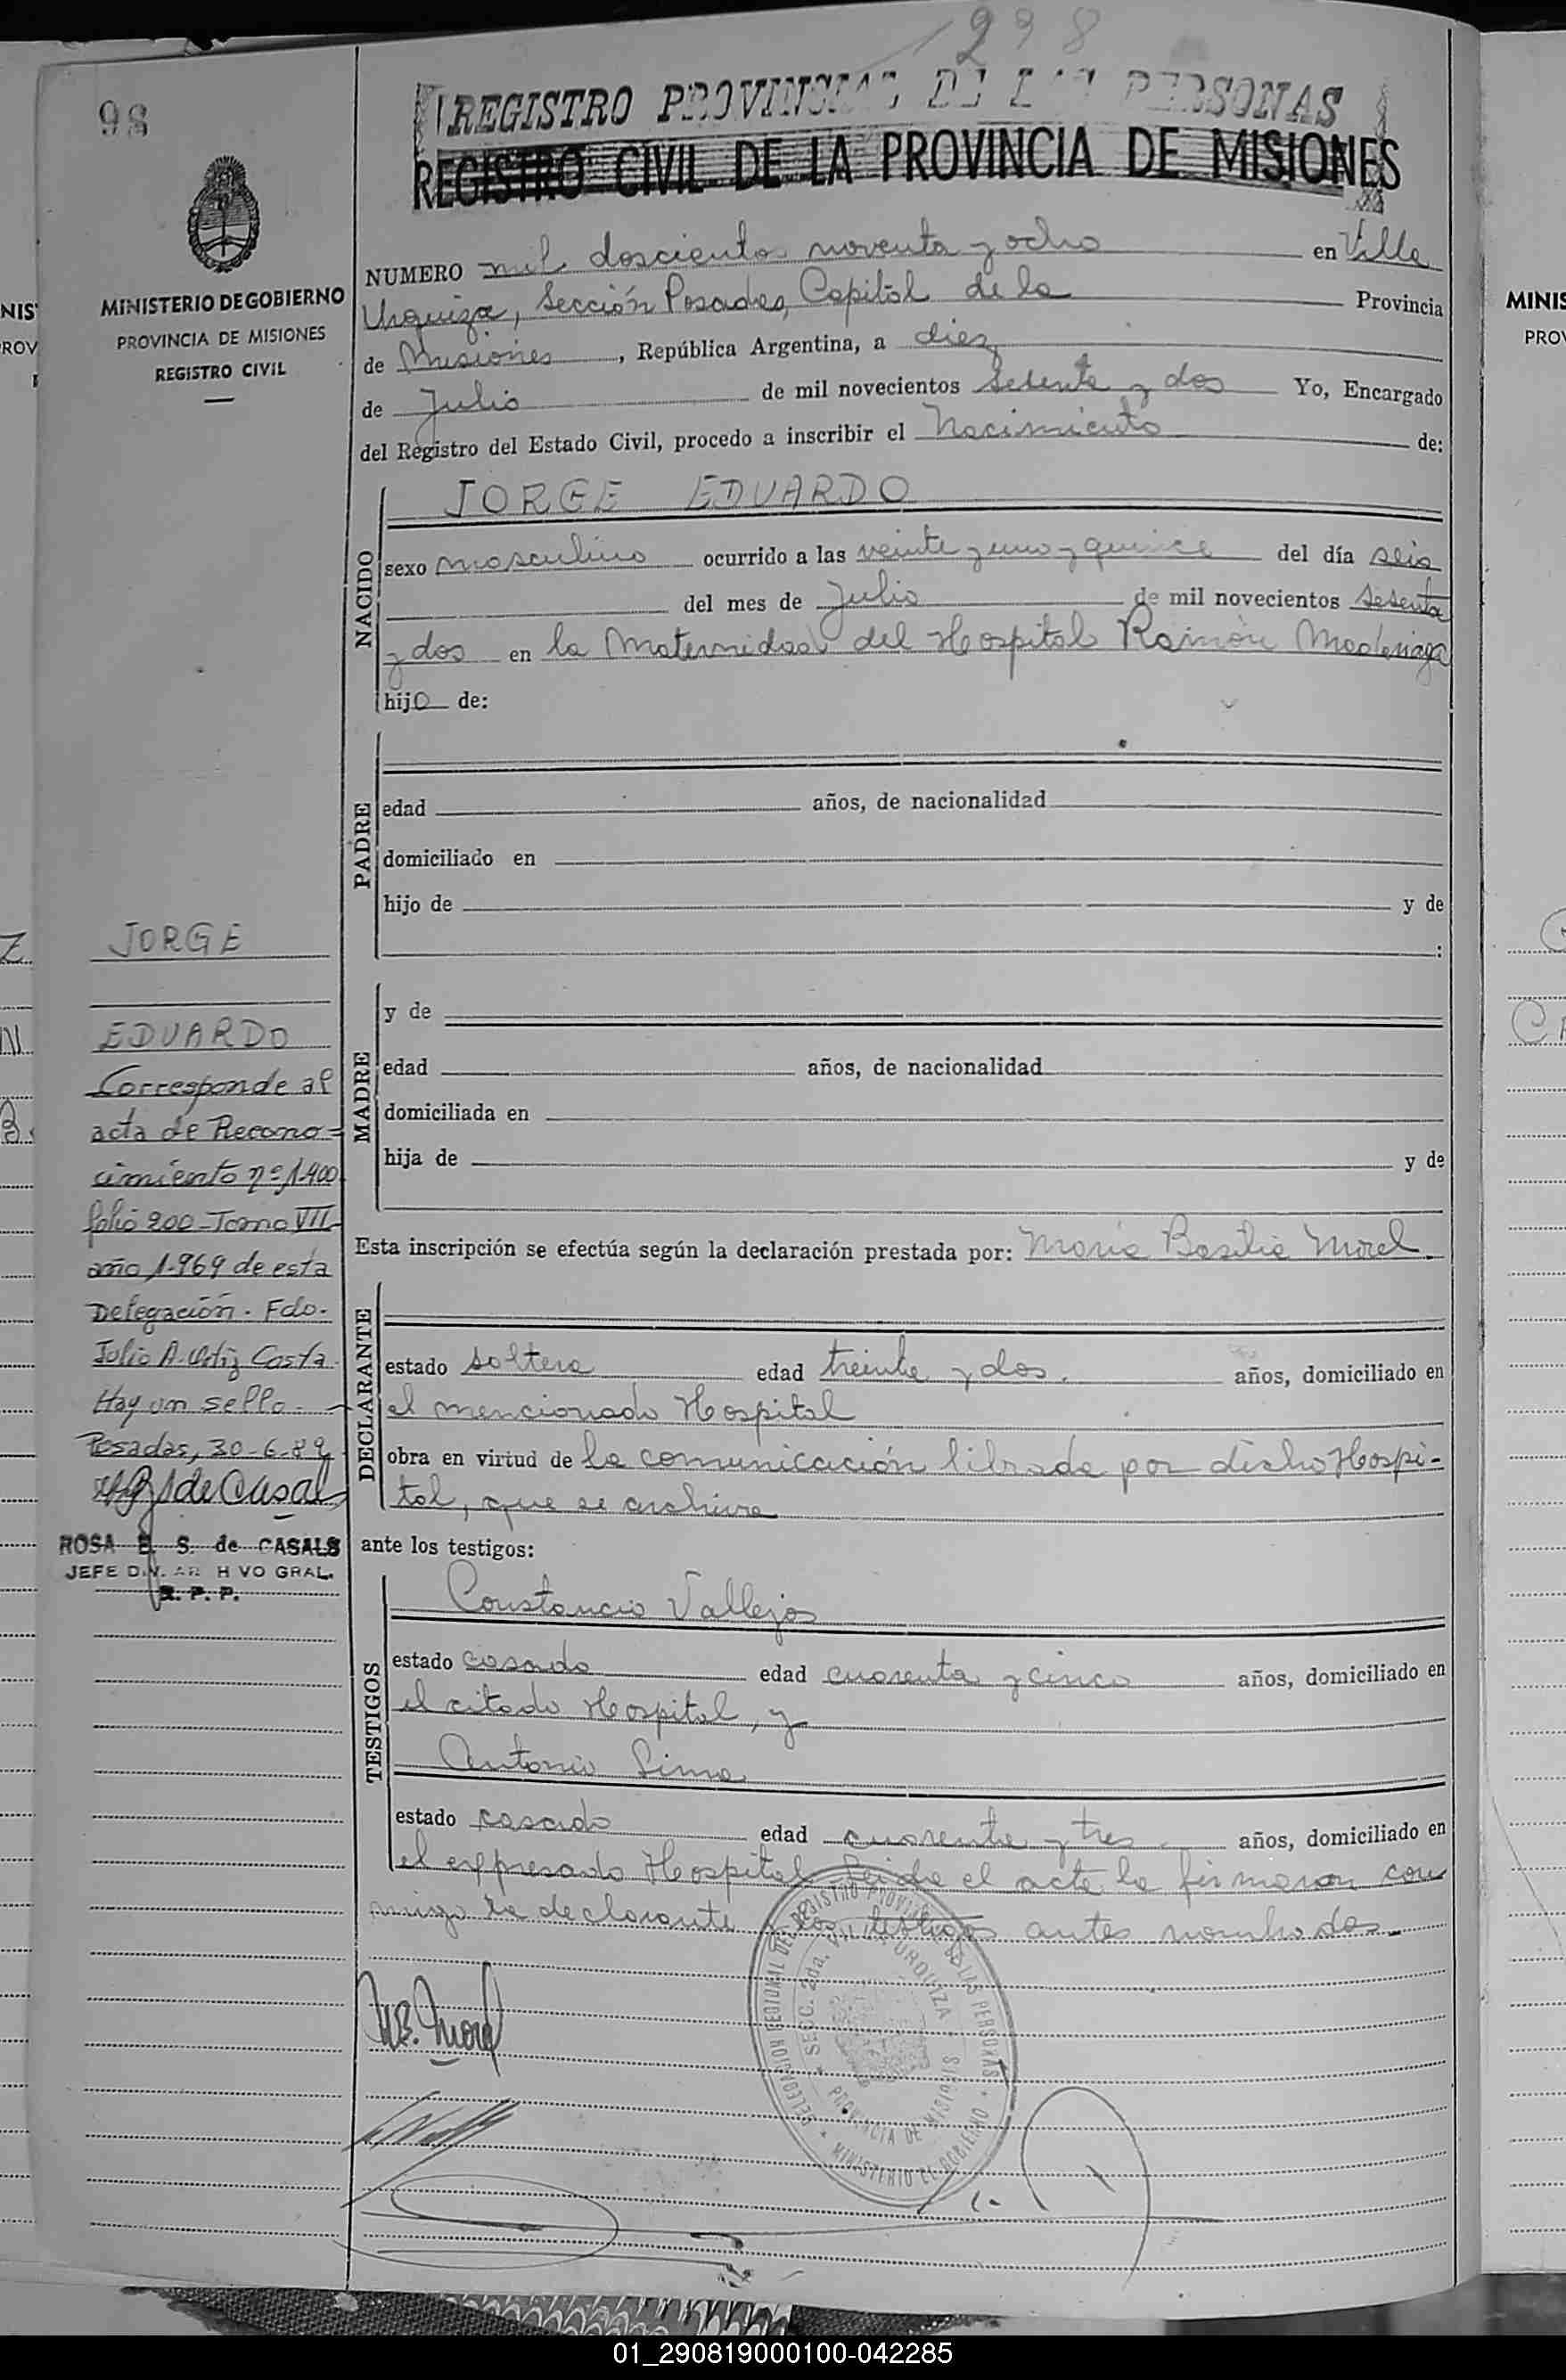 298
98
REGISTRO PROVINCIAL DE LAS PERSONAS
REGISTRO CIVIL DE LA PROVINCIA DE MISIONES
MINISTERIO DE GOBIERNO
PROVINCIA DE MISIONES
REGISTRO CIVIL
NUMERO mil doscientos noventa y ocho en Villa
Urquiza, Sección Posadas, Capital de la Provincia
de Misiones, República Argentina, a diez
de Julio de mil novecientos setenta y dos Yo, Encargado
del Registro del Estado Civil, procedo a inscribir el Nacimiento de:
NACIDO
JORGE EDUARDO
sexo masculino ocurrido a las veinte y uno y quince del día seis
del mes de Julio de mil novecientos setenta
y dos en la Maternidad del Hospital Ramón Madariaga
hijo de:
PADRE
edad años, de nacionalidad
domiciliado en
hijo de y de
:
MADRE
y de
edad años, de nacionalidad
domiciliada en
hija de y de
Esta inscripción se efectúa según la declaración prestada por: María Basilia Morel.
DECLARANTE
estado soltera edad treinta y dos. años, domiciliado en
el mencionado Hospital
obra en virtud de la comunicación librada por dicho Hospi-
tal, que se archiva
ante los testigos:
TESTIGOS
Constancio Vallejos
estado casado edad cuarenta y cinco años, domiciliado en
el citado Hospital, y
Antonio Lima
estado casado edad cuarenta y tres. años, domiciliado en
el expresado Hospital. Leida el acta la firmaron con
migo la declarante y los testigos antes nombrados.
M.B. Morel
DELEGACION REGIONAL DEL REGISTRO PROVINCIAL DE LAS PERSONAS
MINISTERIO DE GOBIERNO
SECC. 2da. VILLA URQUIZA
PROVINCIA DE MISIONES
JORGE
EDUARDO
Corresponde al
acta de Recono=
cimiento nº 1.400
folio 200-Tomo VII
año 1.969 de esta
Delegación. Fdo.
Julio A. Ortiz Costa.
Hay un sello.
Posadas, 30-6-89
de Casals
ROSA E. S. de CASALS
JEFE DIV. ARCHIVO GRAL.
R. P. P.
MINIS
PROV
01_290819000100-042285